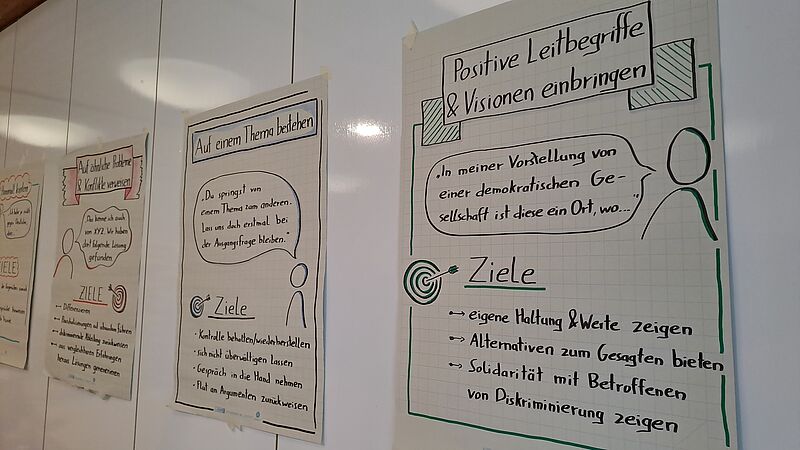 Auf ähnliche Probleme
& Konflikte verweisen
Das kenne ich auch
von XYZ. Wir haben
dort folgende Lösung
gefunden.
ZIELE
Differenzieren
aus vergleichbaren Erfahrungen
heraus Lösungen generieren
Auf einem Thema bestehen
„Du springst von
einem Thema zum anderen.
Lass uns doch erstmal bei
der Ausgangsfrage bleiben."
Ziele
· Kontrolle behalten/wiederherstellen
· sich nicht überwältigen lassen
· Gespräch in die Hand nehmen
· Flut an Argumenten zurückweisen
Positive Leitbegriffe
& Visionen einbringen
„In meiner Vorstellung von
einer demokratischen Ge-
sellschaft ist diese ein Ort, wo..."
Ziele
↔ eigene Haltung & Werte zeigen
↔ Alternativen zum Gesagten bieten
↔ Solidarität mit Betroffenen
von Diskriminierung zeigen